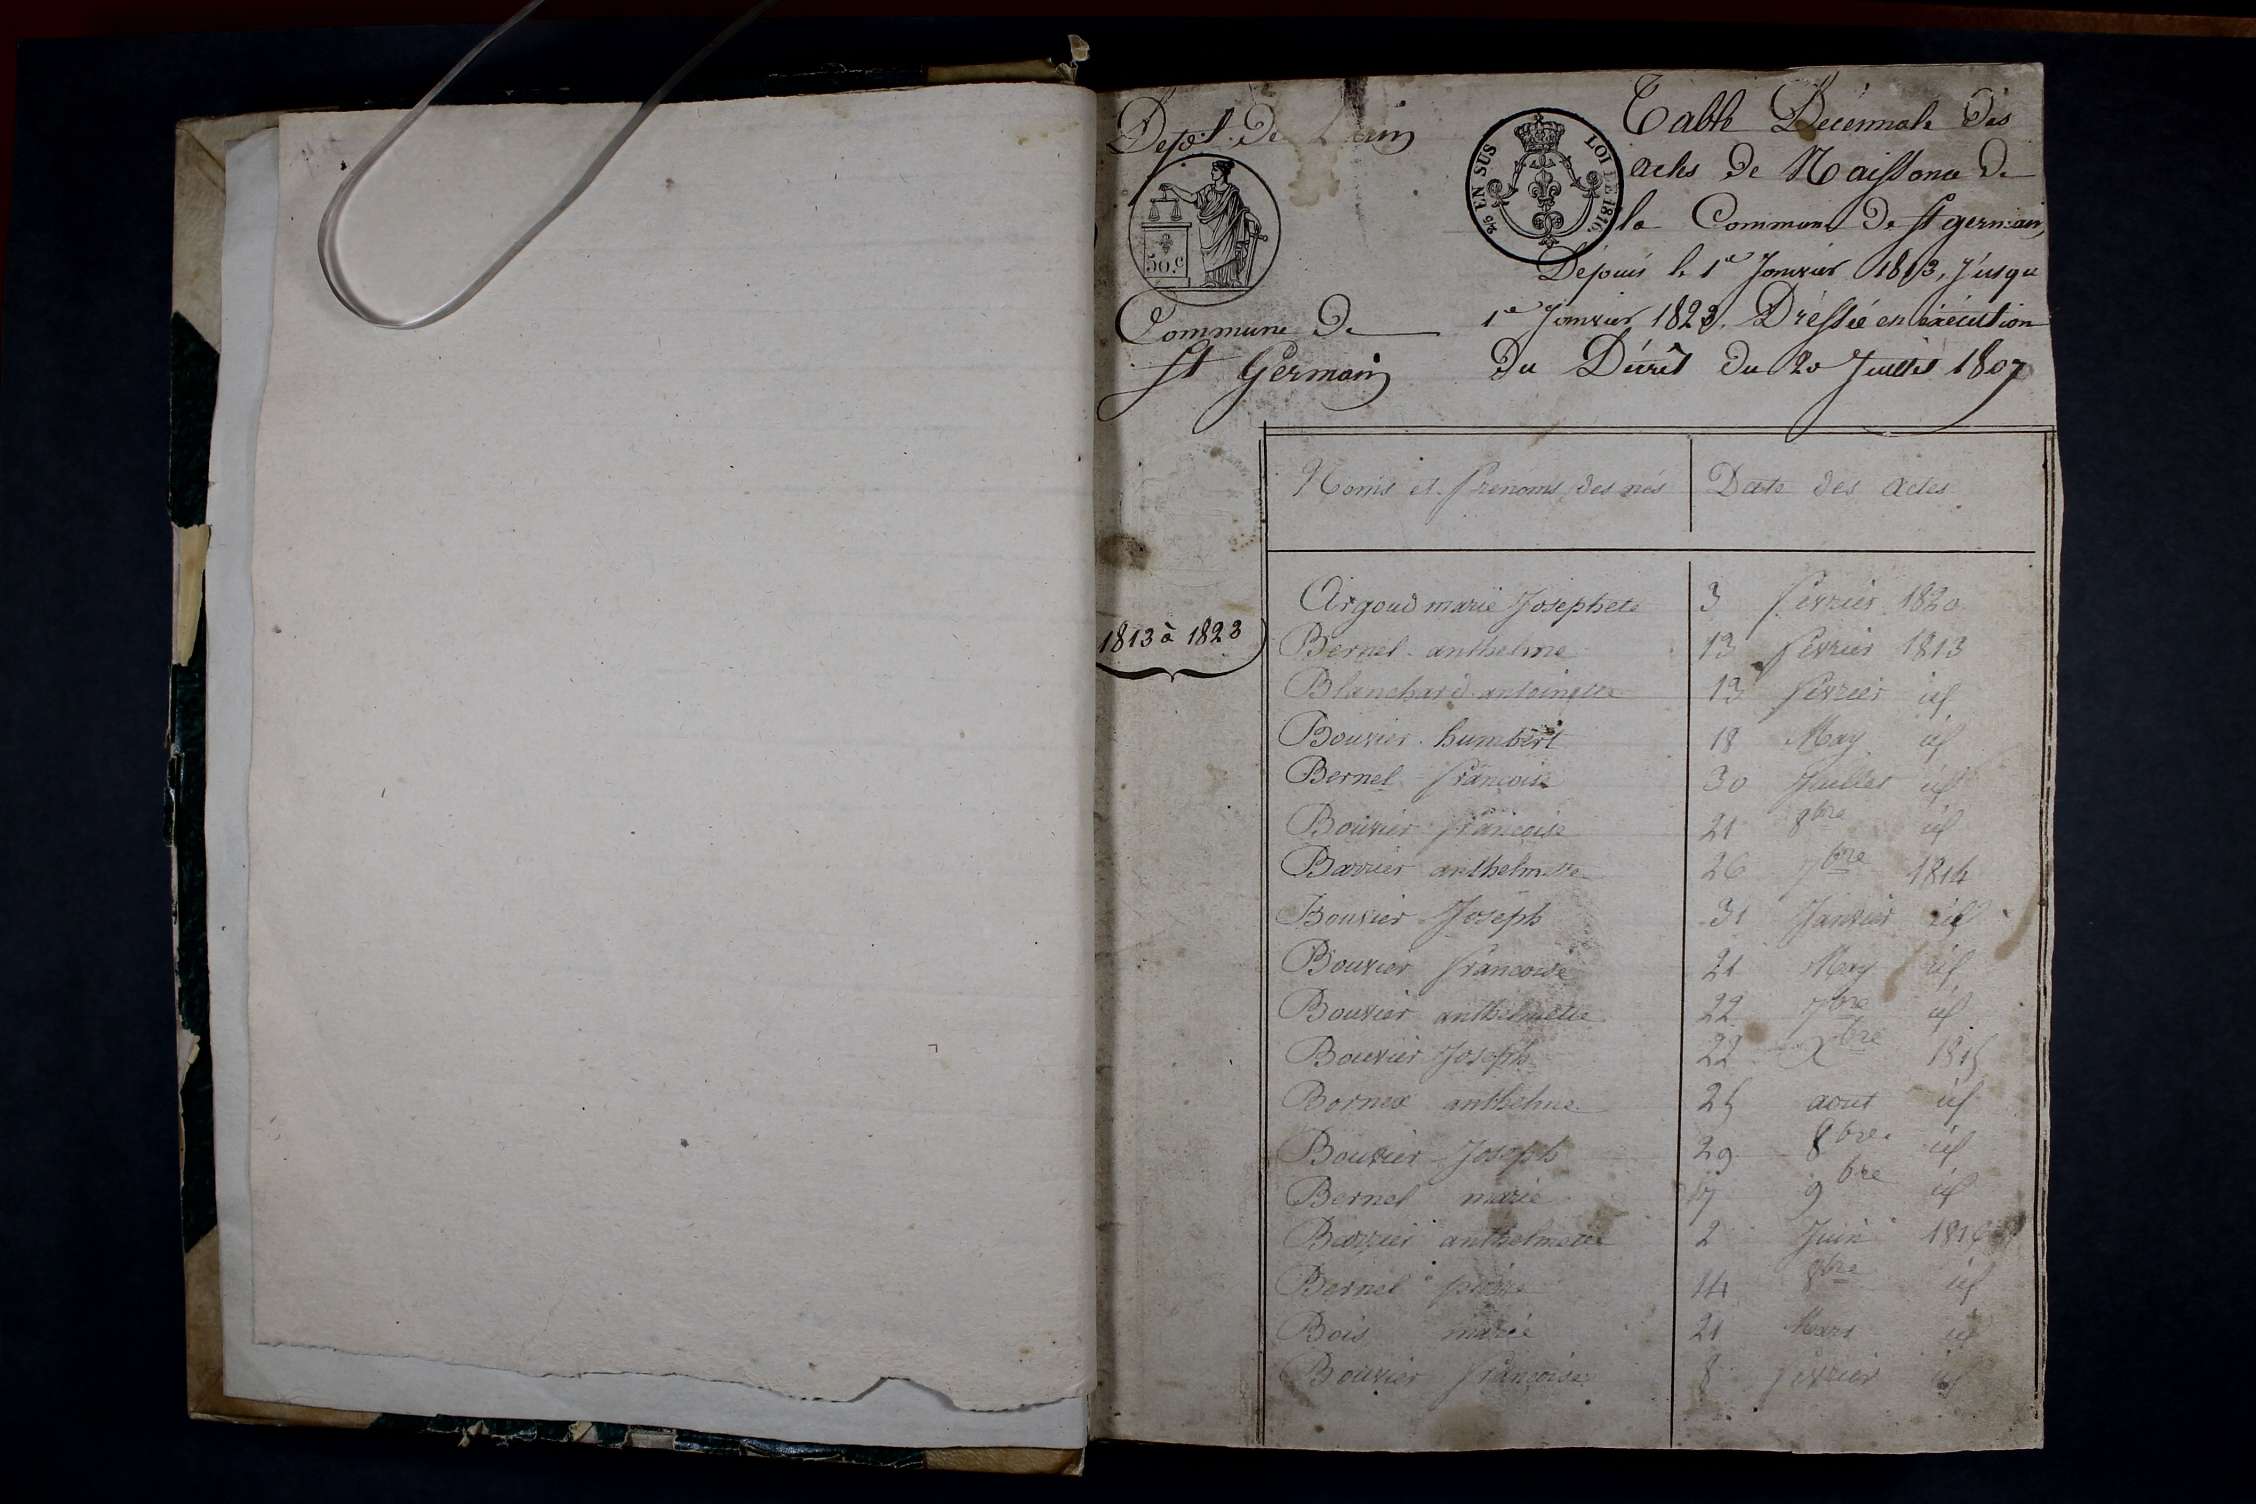 Depot De L'ain
50.c
Commune De
St Germain
2/5 EN SUS LOI DE 1816.
Table Décennale Des
actes De Naissance De
la Commune De St germain
Depuis le 1er Janvier 1813, Jusqu
1er Janvier 1823. Dréssée en éxécution
Du Décrêt Du 20 Juillet 1807
1813 à 1823
Noms et Prenoms des nés | Date des actes
Argoud marie Josephete 3 fevrier 1820
Bernel anthelme 13 fevrier 1813
Blanchard antoinette 13 fevrier id
Bouvier humbert 18 May id
Bernel françoise 30 Juillet id
Bouvier françoise 21 8bre id
Barrier anthelmette 26 7bre 1814
Bouvier Joseph 31 Janvier id
Bouvier francoise 21 May id
Bouvier anthelmette 22 7bre id
Bouvier Joseph 22 Xbre 1815
Bornex anthelme 25 aout id
Bouvier Joseph 29 8bre id
Bernel marie 17 9bre id
Barrier anthelmette 2 Juin 1816
Bernel pierre 14 8bre id
Bois marie 21 Mars id
Bouvier françoise 8 fevrier id